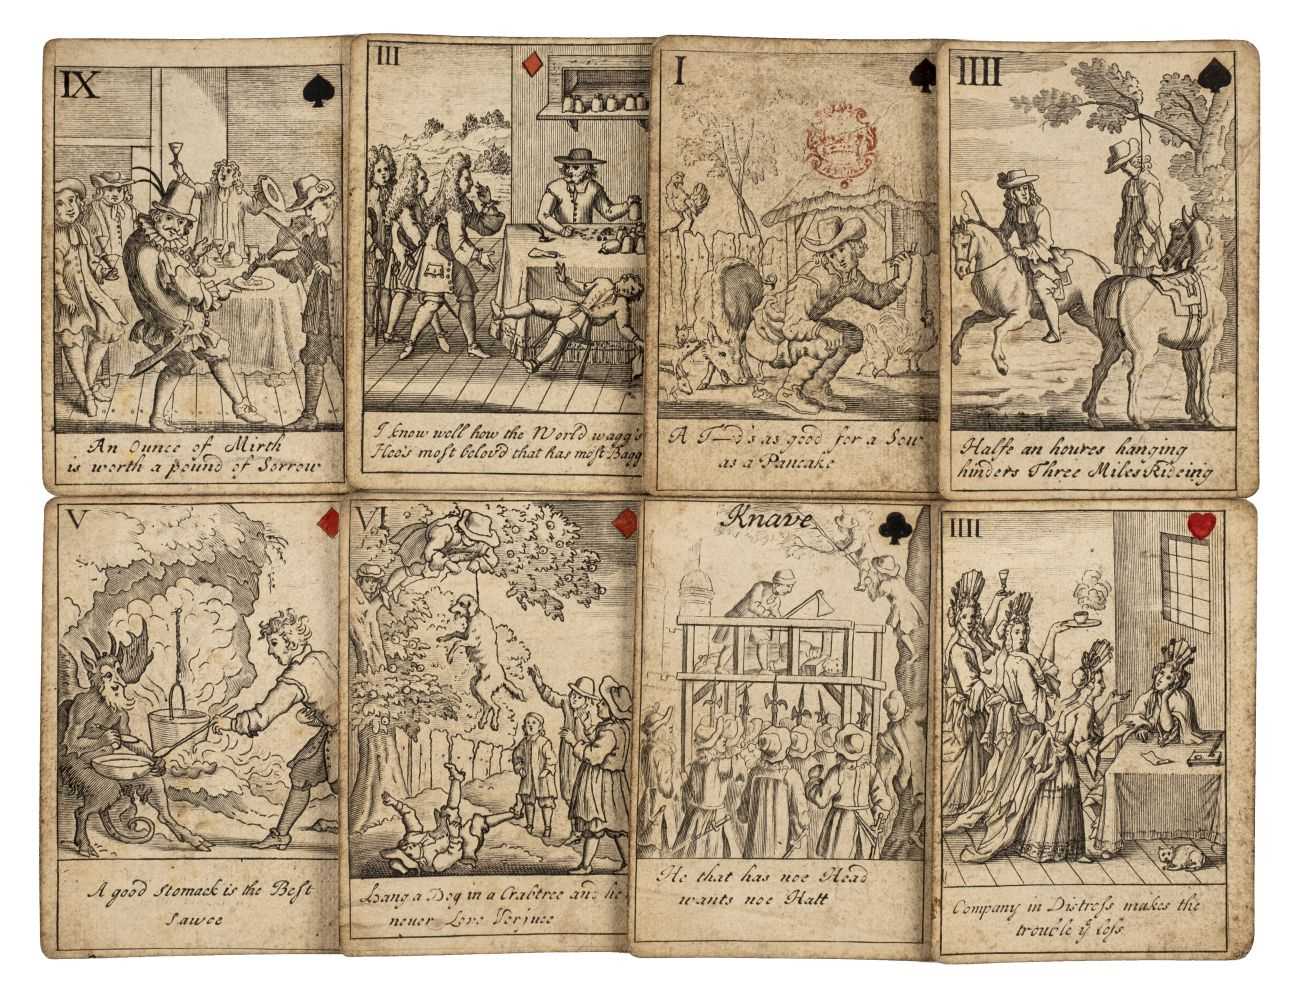 IX
An Ounce of Mirth
is worth a pound of Sorrow
III
I know well how the World wagg's
Hee's most belov'd that has most Bagg
I
A T—d's as good for a Sow
as a Pancake
IIII
Halfe an houres hanging
hinders Three Miles Rideing
V
A good stomack is the Best
sawce
VI
Hang a Dog in a Crabtree and he
never Love Verjuce
Knave
He that has noe Head
wants noe Hatt
IIII
Company in Distress makes the
trouble ye less